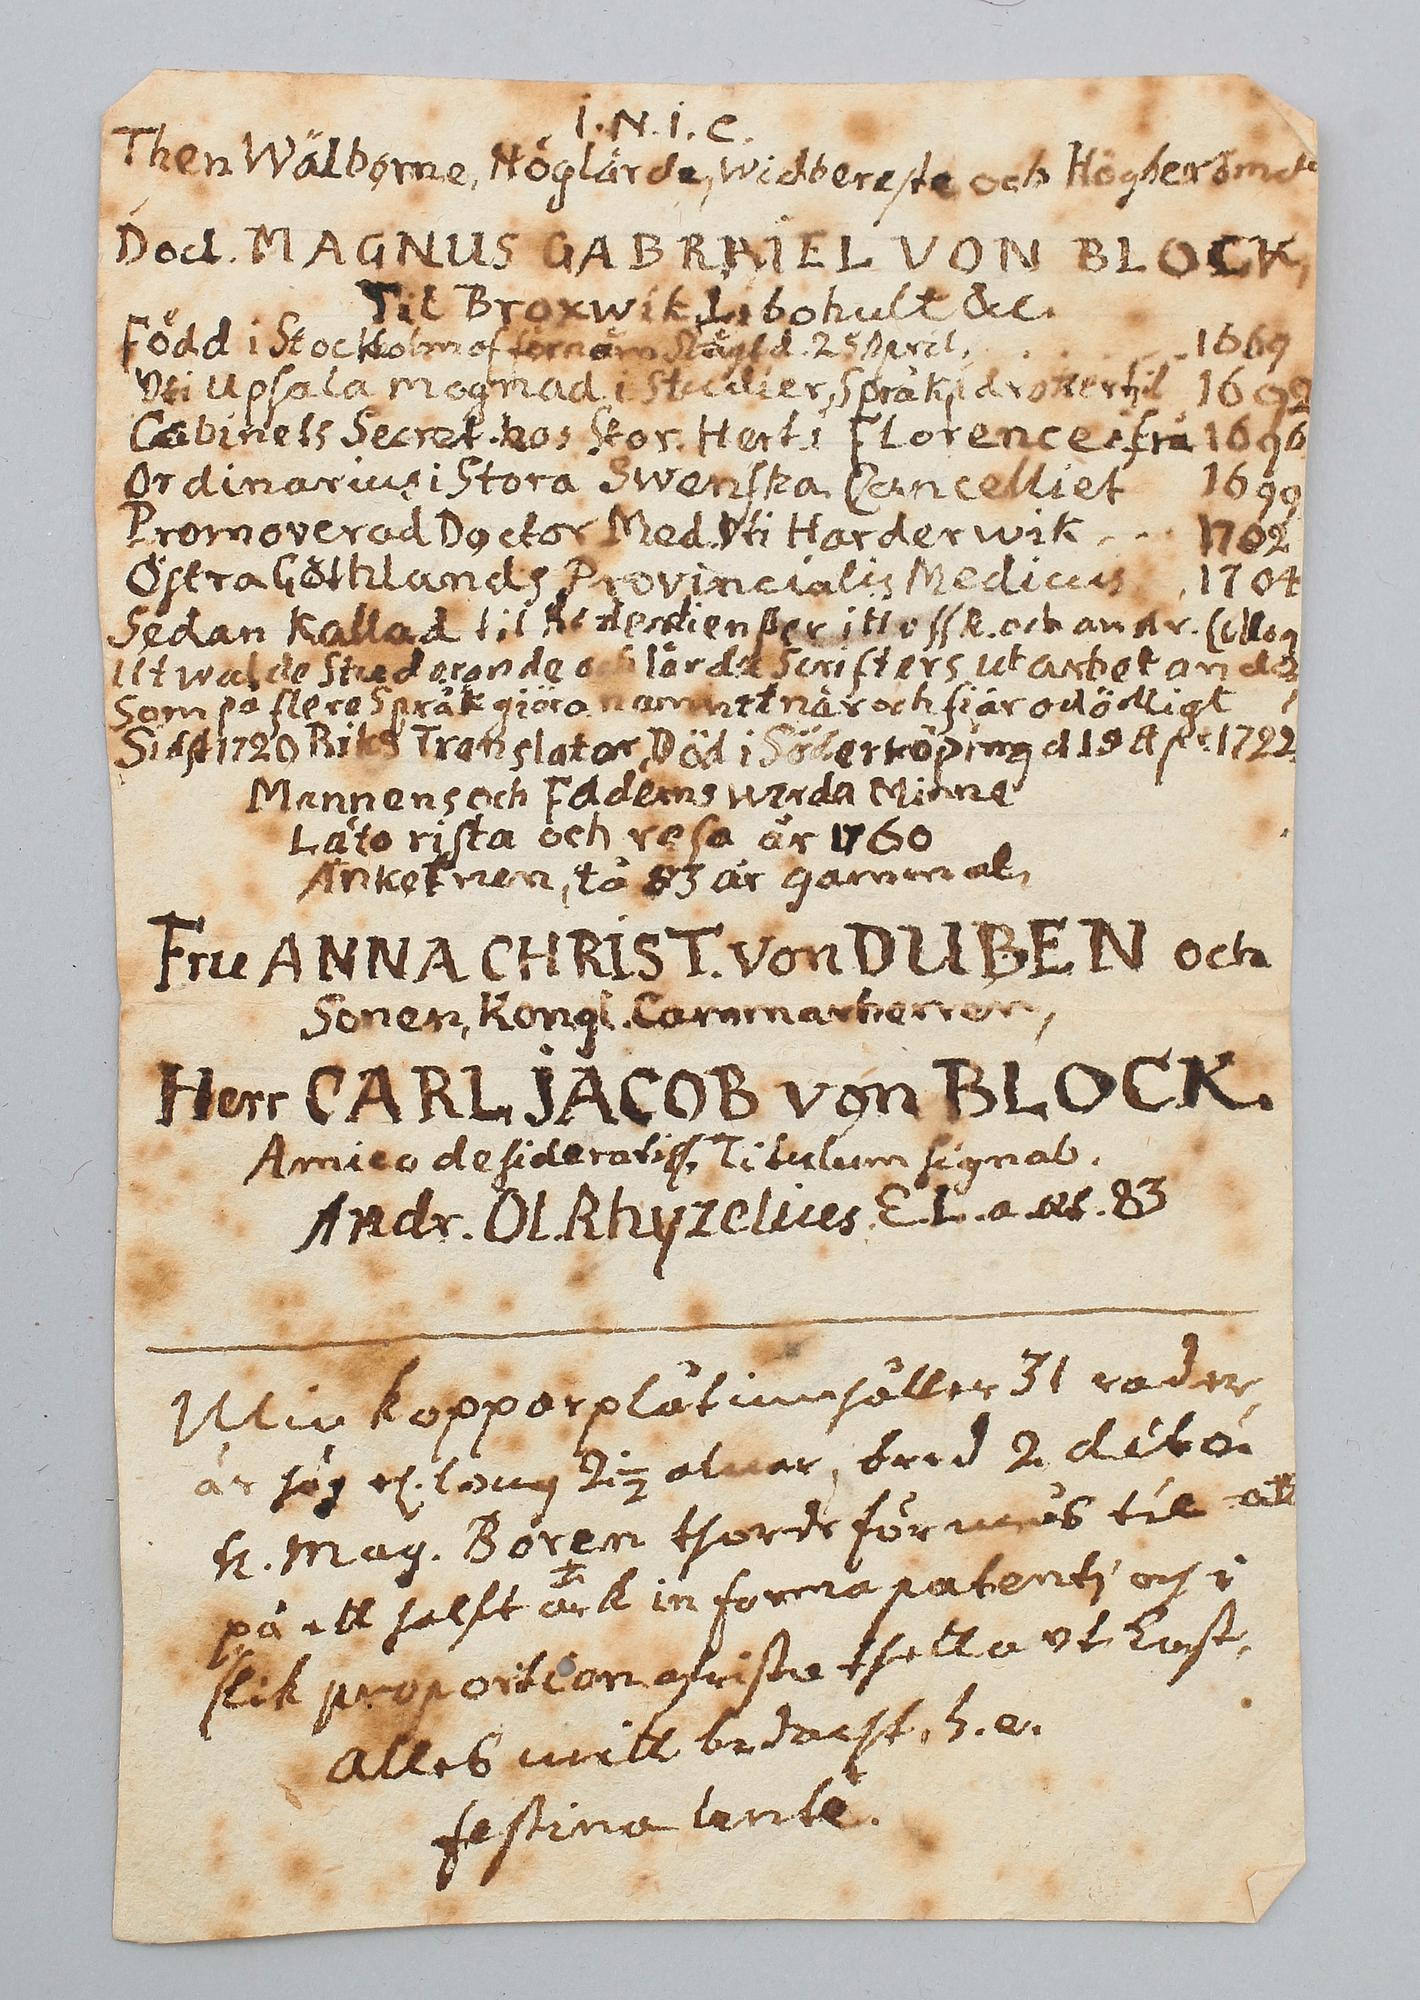 I.N.I.C.
Then Wälborne, Höglärde, widbereste och Högberömde
Doct. MAGNUS GABRIEL VON BLOCK,
Til Broxwik, Libohult &c.
Född i Stockholm af förnäm Slägt d. 25 April, . . . 1669
Uti Upsala mognad i Studier, Språk, idrotter til 1692
Cabinets Secret. hos Stor. Hert. i Florence ifrå 1696
Ordinarius i Stora Swenska Cancelliet 1699
Promoverad Doctor Med. Uti Harderwik - - 1702
Östra Göthlands Provincialis Medicus . 1704
Sedan Kallad til och andr. Colleg
Utwalde Studerande och lärda Scrifters utarbetande
Som på flere Språk giöra namnet när och fiär odödligt
Sidst 1720 Riks Translator, Död i Söderköping d 19 1722
Mannens och Faderns wärda Minne
Läto rista och resa år 1760
Ankefruen, tå 83 år gammal,
Fru ANNA CHRIST. von DUBEN och
Sonen, Kongl. Cammarherren,
Herr CARL JACOB von BLOCK.
Amico desideratiss. Titulum signab.
Andr. Ol. Rhyzelius. E. L. a. æt. 83
kopparplåt innehåller 31 rader,
är hög el. lång 2 1/2 alnar, bred 2 dito.
H. Mag. Boren torde för til att
på ett halft ark in forma patenti och i
slik proportion thetta utkast,
alles witt bedacht, h.e.
festina lente.